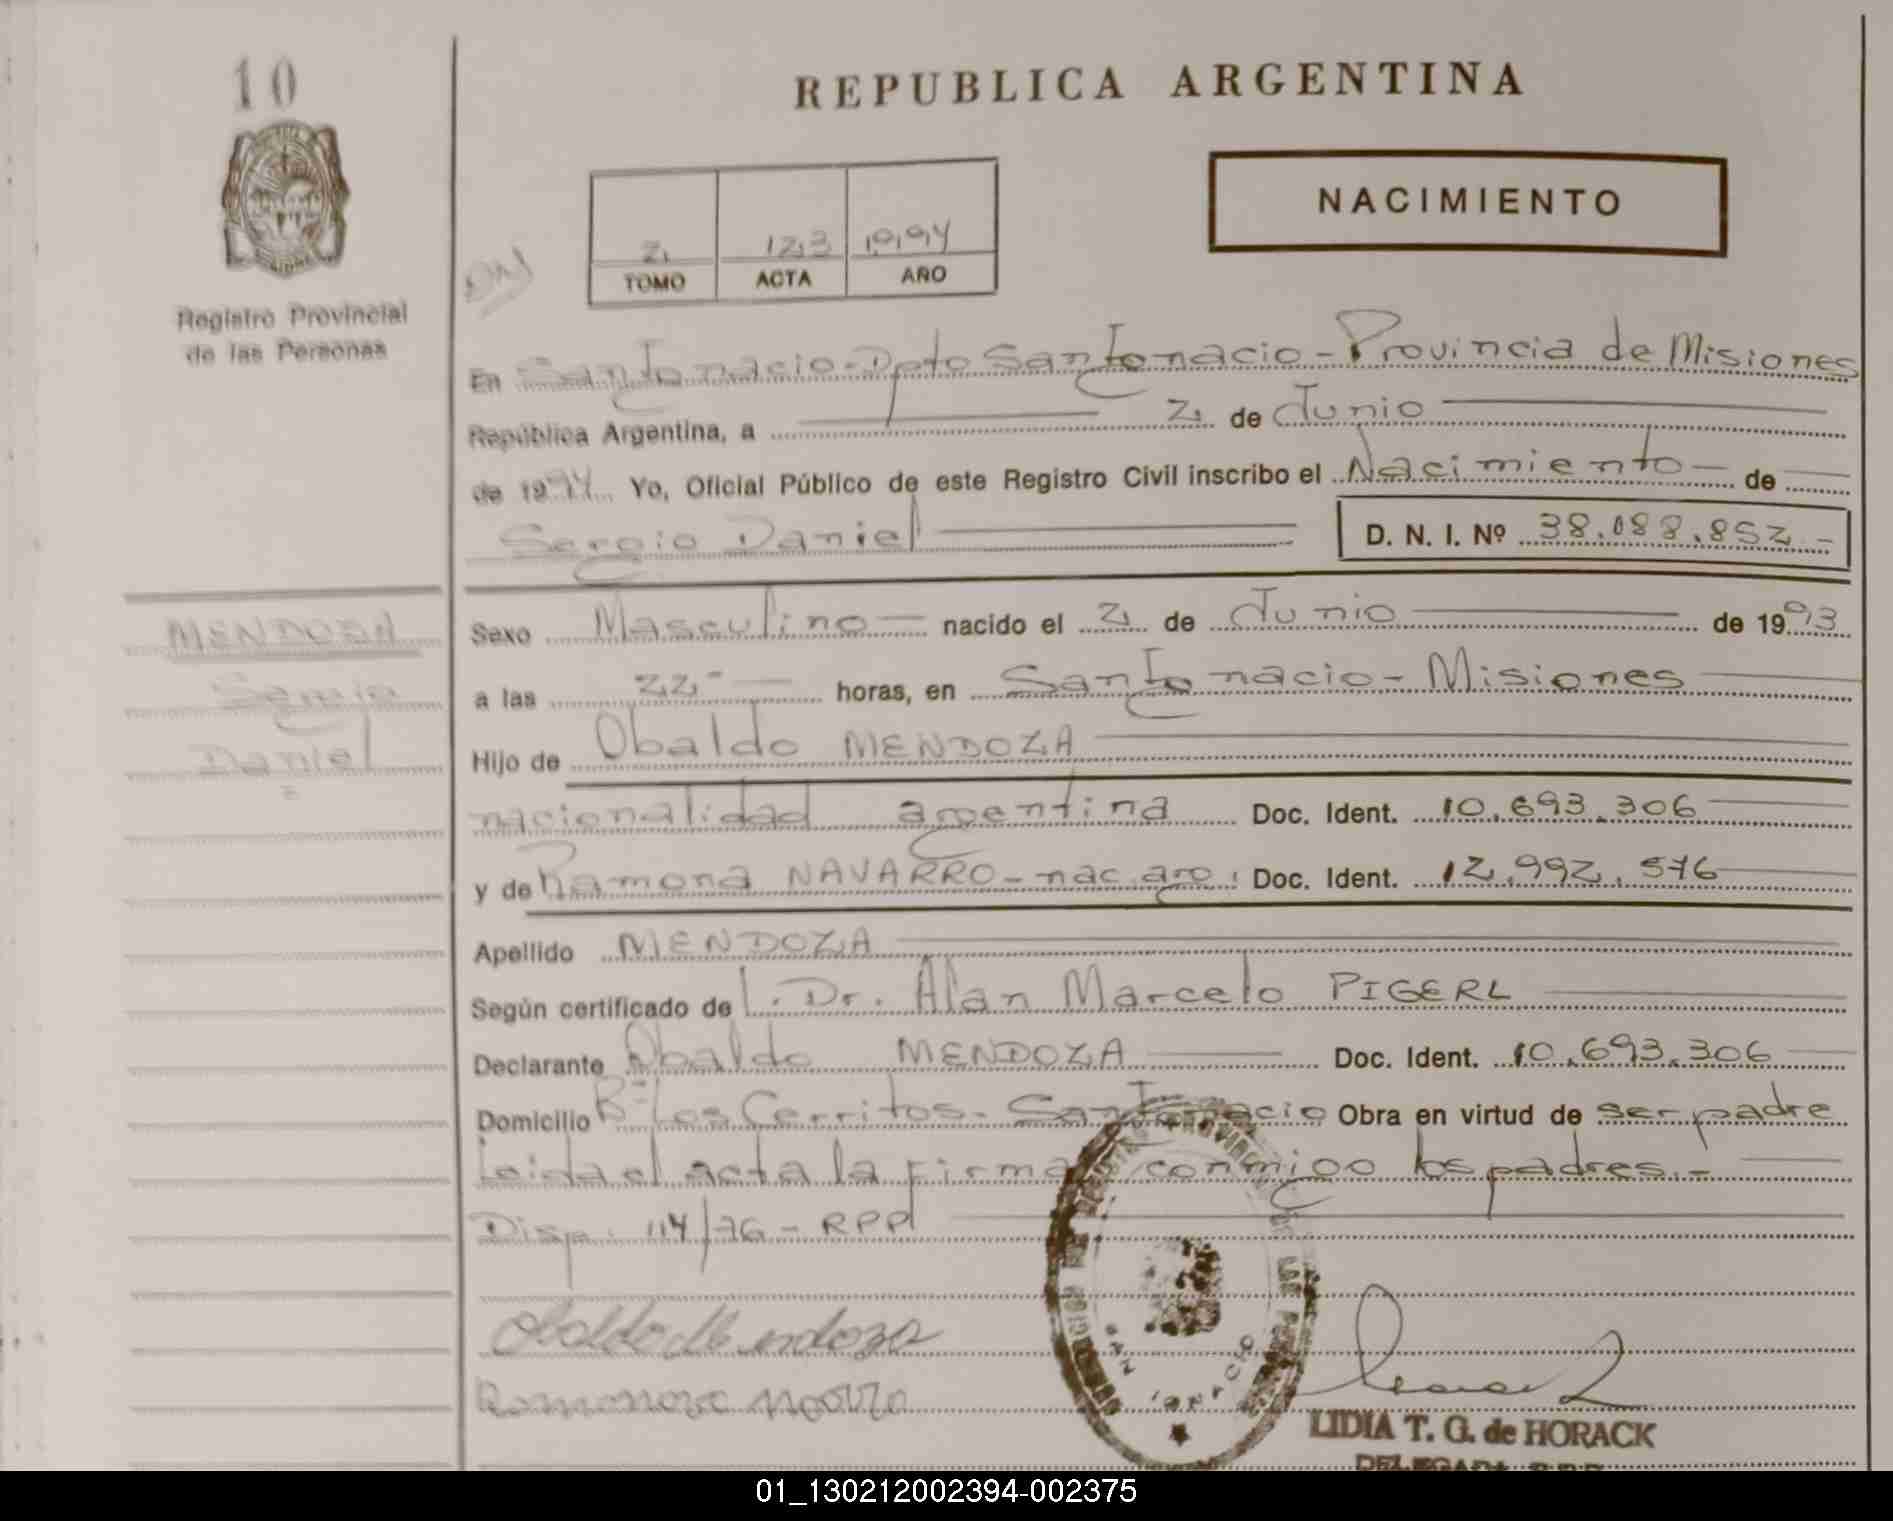 10
REPUBLICA ARGENTINA
NACIMIENTO
2 123 1994
TOMO ACTA AÑO
Registro Provincial
de las Personas
En San Ignacio - Dpto San Ignacio - Provincia de Misiones
República Argentina, a 2 de Junio
de 1994 Yo, Oficial Público de este Registro Civil inscribo el Nacimiento - de
Sergio Daniel D. N. I. Nº 38.088.852 -
MENDOZA
Sergio
Daniel
Sexo Masculino nacido el 2 de Junio de 1993
a las 22 - horas, en San Ignacio - Misiones
Hijo de Obaldo MENDOZA
nacionalidad argentina Doc. Ident. 10.693.306
y de Ramona NAVARRO - nac. arg. Doc. Ident. 12.992.576
Apellido MENDOZA
Según certificado de Dr. Alan Marcelo PIGERL
Declarante Obaldo MENDOZA Doc. Ident. 10.693.306
Domicilio Bº Los Cerritos - San Ignacio Obra en virtud de ser padre
Leida el acta la firman conmigo los padres. -
Disp. 114/76 - RPP
Obaldo Mendoza
SAN IGNACIO
LIDIA T. G. de HORACK
01_130212002394-002375